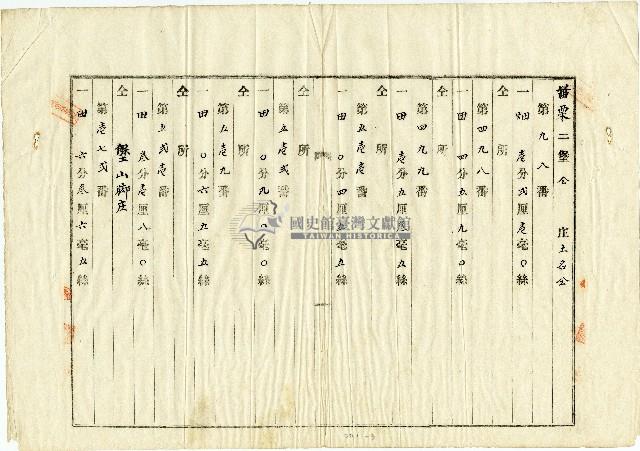 苗栗二堡仝 庄土名仝
第九八番
一畑 壱分弐厘壱毫〇絲
仝 所
第四九八番
一田 四分五厘九毫〇絲
仝 所
第四九九番
一田 壱分五厘壱毫五絲
仝 所
第五壱壱番
一田 〇分四厘五毫五絲
仝 所
第五壱弐番
一田 〇分九厘〇毫〇絲
仝 所
第五壱九番
一田 〇分六厘九毫五絲
仝 所
第五弐壱番
一田 叁分壱厘八毫〇絲
仝 堡山脚庄
第壱七弐番
一田 六分叁厘六毫五絲
國史館臺灣文獻館
TAIWAN HISTORICA